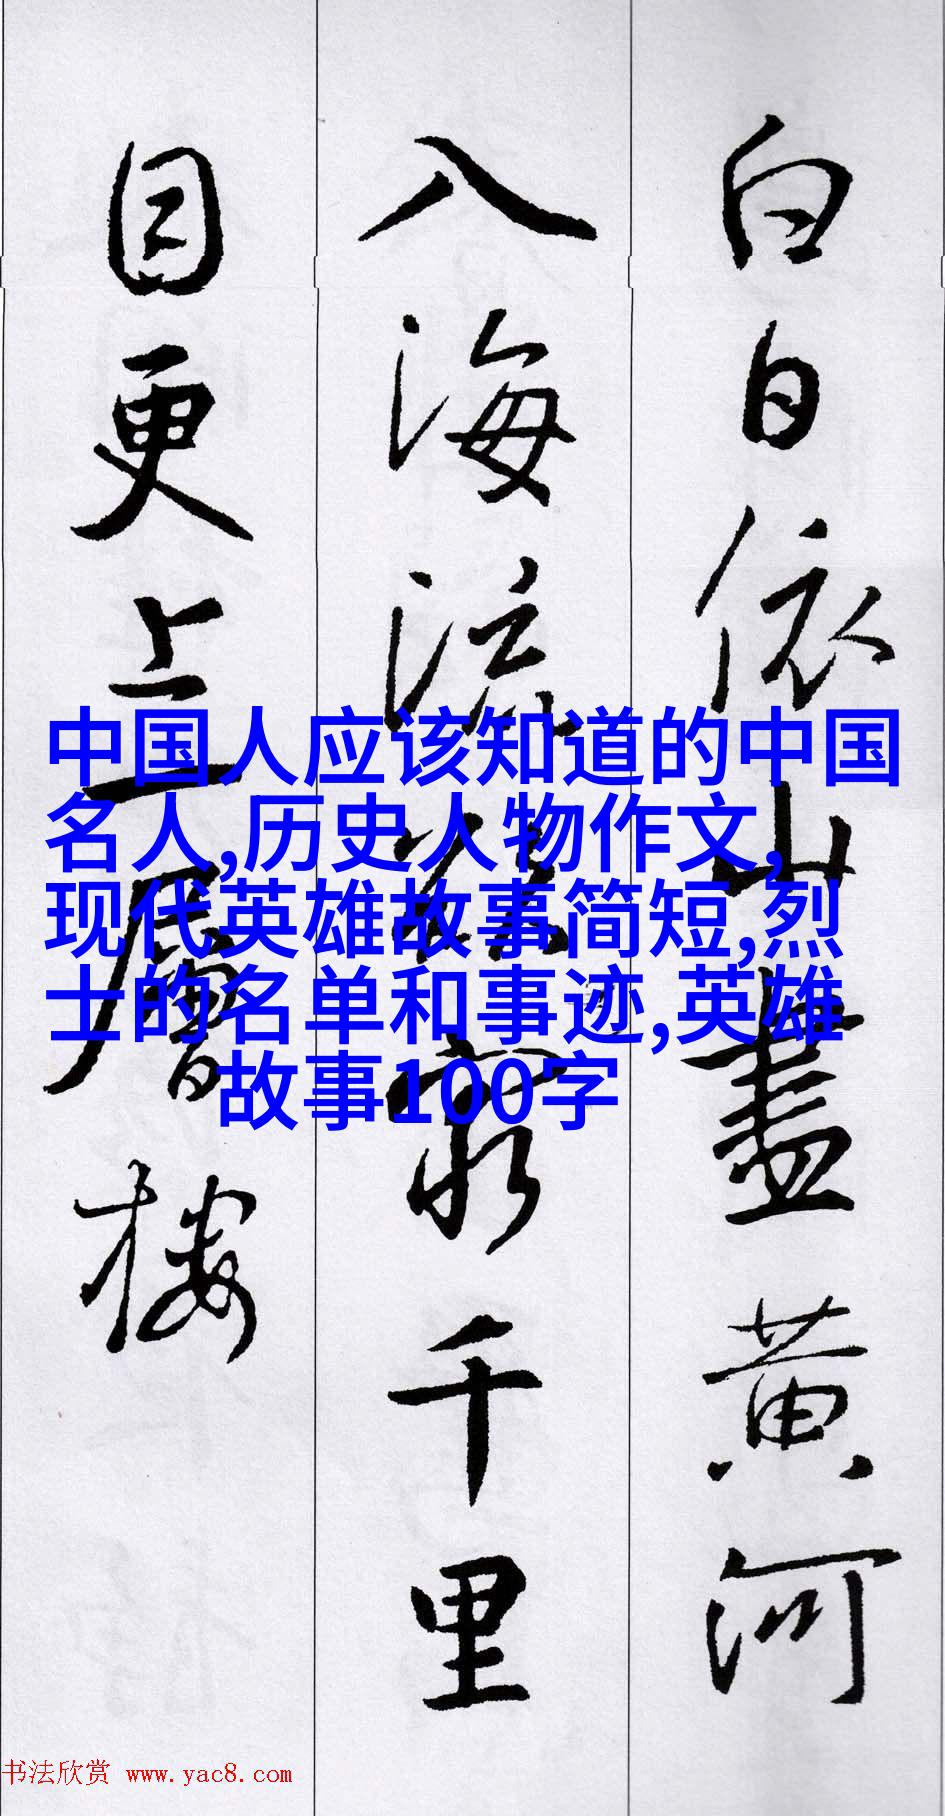 白日依山盡黄河
入海流欲窮千里
目更上一層樓
中国人应该知道的中国
名人,历史人物作文,
现代英雄故事简短,烈
士的名单和事迹,英雄
故事100字
书法欣赏 www.yac8.com